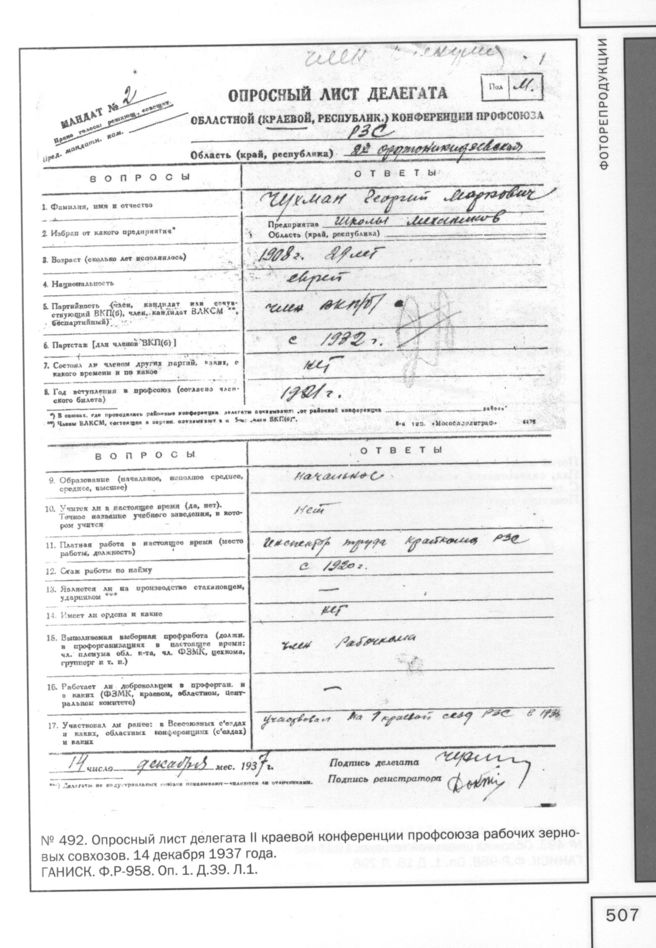 член
МАНДАТ № 2
Право голоса решающ., совещат.
Пред. мандатн. ком.
ОПРОСНЫЙ ЛИСТ ДЕЛЕГАТА
Пол М.
ОБЛАСТНОЙ (КРАЕВОЙ, РЕСПУБЛИК.) КОНФЕРЕНЦИИ ПРОФСОЮЗА
РЗС
Область (край, республика) Орджоникидзевская
ВОПРОСЫ ОТВЕТЫ
1. Фамилия, имя и отчество Чухман Георгий Маркович
2. Избран от какого предприятия*
Предприятие Школы механиков
Область (край, республика)
3. Возраст (сколько лет исполнилось) 1908 г. 29 лет
4. Национальность еврей
5. Партийность (член, кандидат или сочув-
ствующий ВКП(б), член, кандидат ВЛКСМ **,
беспартийный) член ВКП/б/
6. Партстаж [для членов ВКП(б)] с 1932 г.
7. Состоял ли членом других партий, каких, с
какого времени и по какое нет
8. Год вступления в профсоюз (согласно член-
ского билета) 1921 г.
*) В союзах, где проводились районные конференции, делегаты указывают: „от районной конференции работн."
ВОПРОСЫ ОТВЕТЫ
9. Образование (начальное, неполное среднее,
среднее, высшее) начальное
10. Учится ли в настоящее время (да, нет).
Точное название учебного заведения, в кото-
ром учится нет
11. Платная работа в настоящее время (место
работы, должность) Инспектор труда Крайкома РЗС
12. Стаж работы по найму с 1920 г.
13. Является ли на производстве стахановцем,
ударником *** —
14. Имеет ли ордена и какие нет
15. Выполняемая выборная профработа (должн.
в профорганизациях в настоящее время:
чл. пленума обл. к-та, чл. ФЗМК, цехкома,
групорг и т. п.) член Рабочкома
16. Работает ли добровольцем в профорган. и
в каких (ФЗМК, краевом, областном, цент-
ральном комитете) —
17. Участвовал ли ранее: в Всесоюзных с'ездах
и каких, областных конференциях (с'ездах)
и каких участвовал на 1 краевой сезд РЗС в
14 число декабря мес. 1937 г.
Подпись делегата
Подпись регистратора
№ 492. Опросный лист делегата II краевой конференции профсоюза рабочих зерно-
вых совхозов. 14 декабря 1937 года.
ГАНИСК. Ф.Р-958. Оп. 1. Д.39. Л.1.
ФОТОРЕПРОДУКЦИИ
507